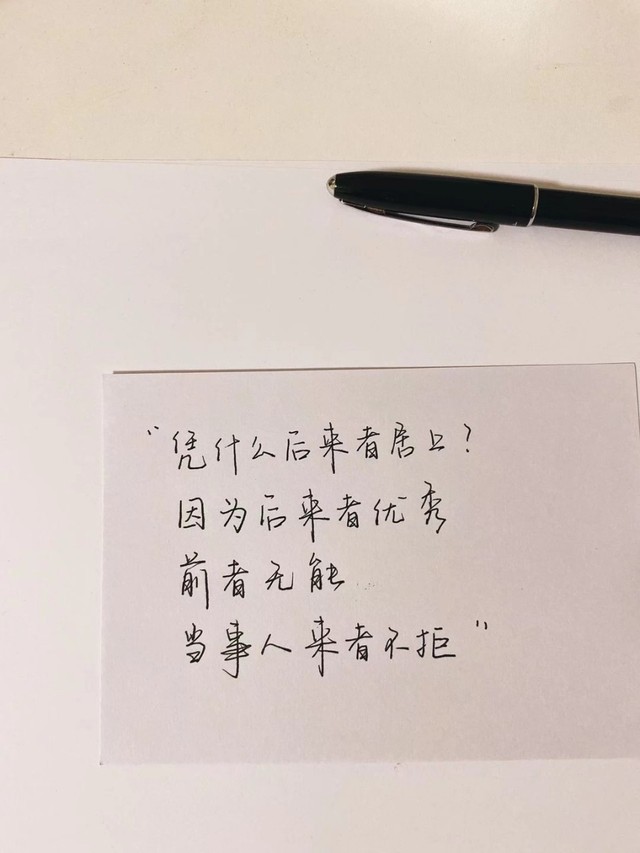 "凭什么后来者居上?
因为后来者优秀
前者无能
当事人来者不拒"